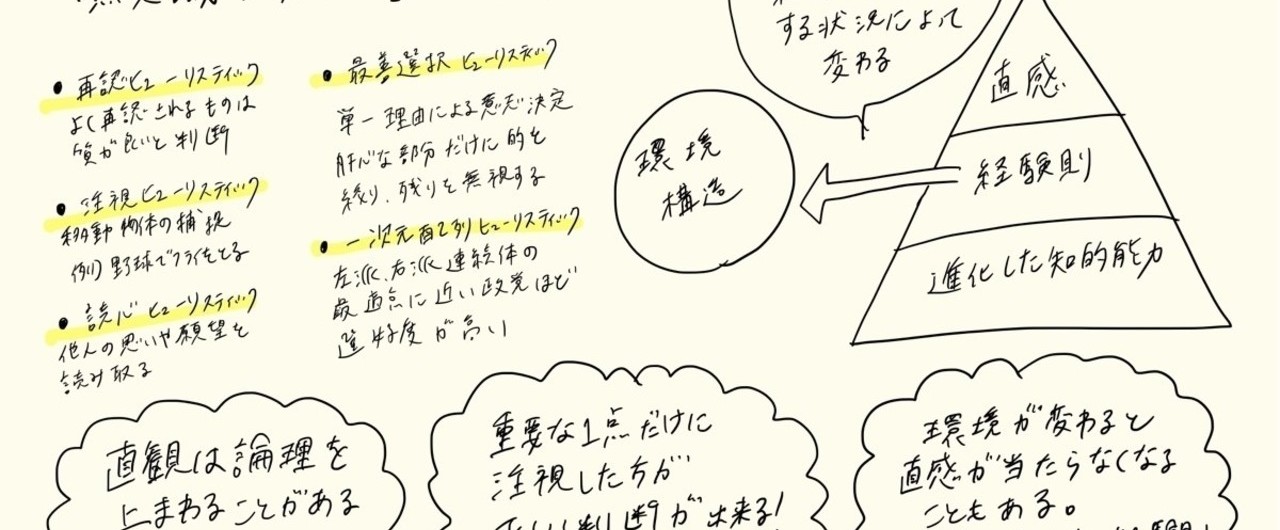 ・再認ヒューリスティック
よく再認されるものは
質が良いと判断
・注視ヒューリスティック
移動物体の捕捉
例)野球でフライをとる
・読心ヒューリスティック
他人の思いや願望を
読み取る
・最善選択ヒューリスティック
単一理由による意思決定
肝心な部分だけに的を
絞り、残りを無視する
・一次元配列ヒューリスティック
左派、右派連続体の
最適点に近い政党ほど
選好度が高い
する状況によって
変わる
環境
構造
直感
経験則
進化した知的能力
直観は論理を
上まわることがある
重要な1点だけに
注視した方が
正しい判断が出来る!
環境が変わると
直感が当たらなくなる
こともある。